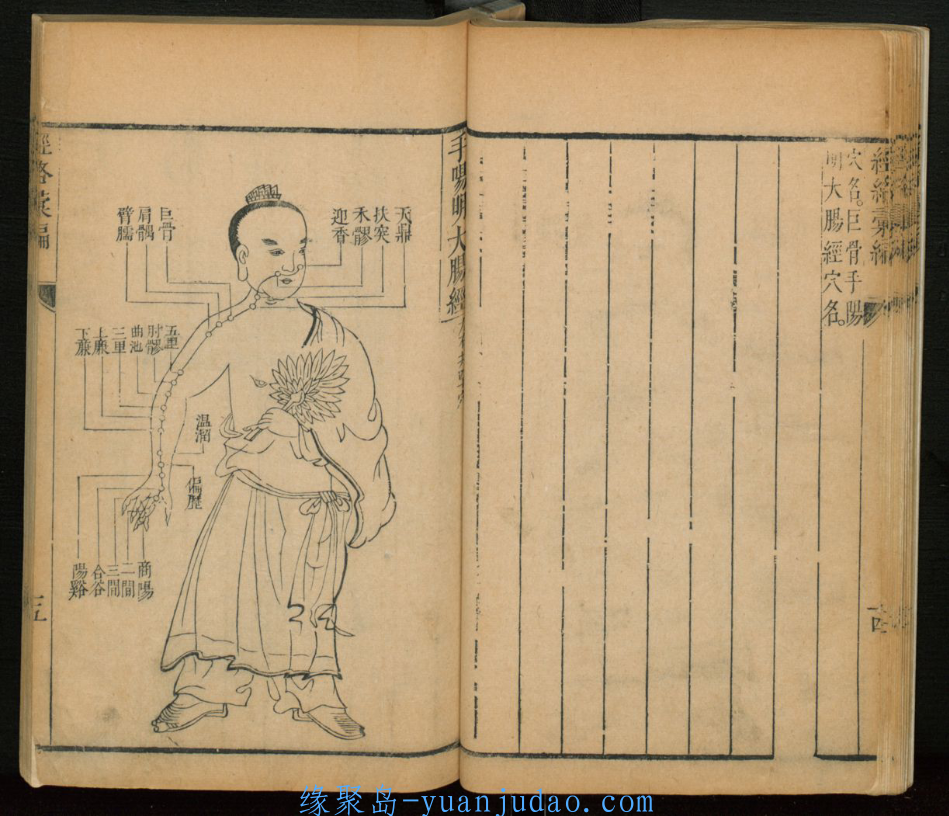 經絡彙編
穴名。巨骨手陽
明大腸經穴名。
手陽明大腸經
天鼎
扶突
禾髎
迎香
巨骨
肩髃
臂臑
五里
肘髎
曲池
三里
上廉
下廉
温溜
偏歷
商陽
二間
三間
合谷
陽谿
經絡彙編
缘聚岛-yuanjudao.com